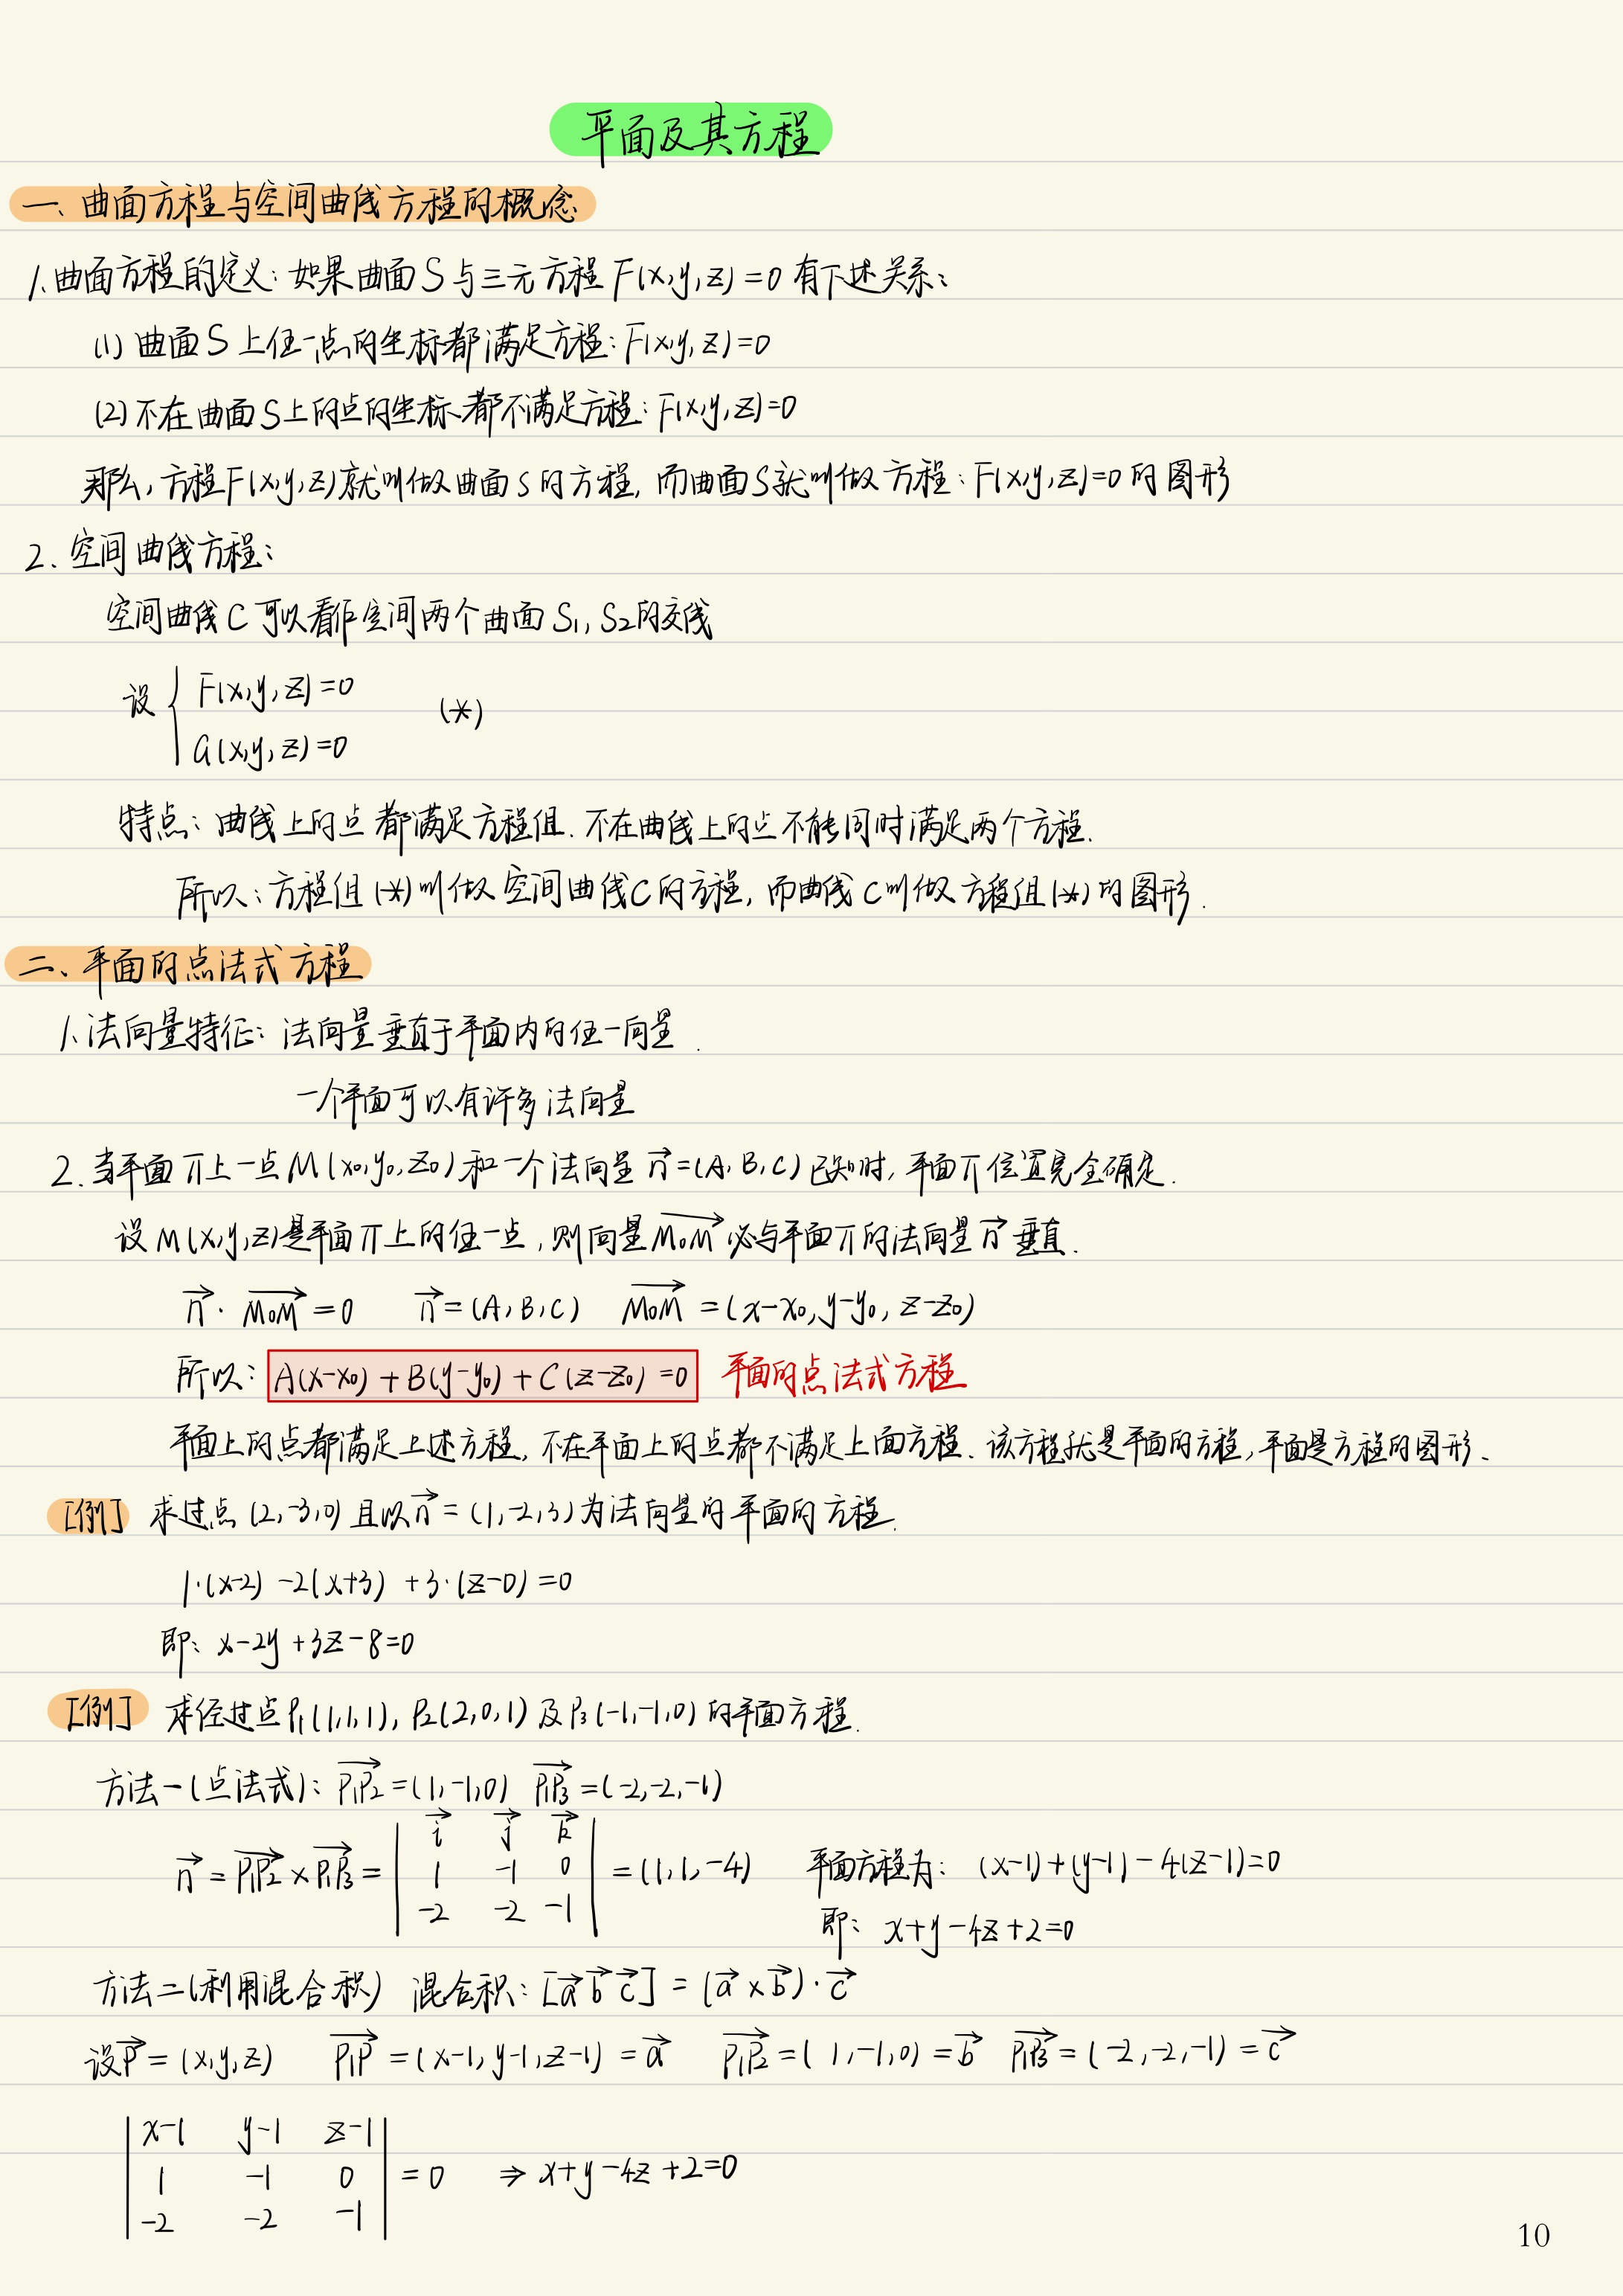 平面及其方程
一、曲面方程与空间曲线方程的概念
1、曲面方程的定义：如果曲面S与三元方程F(x,y,z)=0有下述关系：
(1) 曲面S上任一点的坐标都满足方程：F(x,y,z)=0
(2) 不在曲面S上的点的坐标都不满足方程：F(x,y,z)=0
那么，方程F(x,y,z)就叫做曲面S的方程，而曲面S就叫做方程：F(x,y,z)=0的图形
2、空间曲线方程：
空间曲线C可以看作空间两个曲面S₁，S₂的交线
设 { F(x,y,z)=0
G(x,y,z)=0 (*)
特点：曲线上的点都满足方程组．不在曲线上的点不能同时满足两个方程．
所以：方程组(*)叫做空间曲线C的方程，而曲线C叫做方程组(*)的图形．
二、平面的点法式方程
1、法向量特征：法向量垂直于平面内的任一向量．
一个平面可以有许多法向量
2、当平面π上一点M(x₀,y₀,z₀)和一个法向量n⃗=(A,B,C)已知时，平面π位置完全确定．
设M(x,y,z)是平面π上的任一点，则向量M₀M⃗必与平面π的法向量n⃗垂直．
n⃗·M₀M⃗=0 n⃗=(A,B,C) M₀M⃗=(x-x₀,y-y₀,z-z₀)
所以：A(x-x₀)+B(y-y₀)+C(z-z₀)=0 平面的点法式方程
平面上的点都满足上述方程，不在平面上的点都不满足上面方程、该方程就是平面的方程，平面是方程的图形、
[例] 求过点(2,-3,0)且以n⃗=(1,-2,3)为法向量的平面的方程．
1·(x-2)-2(x+3)+3·(z-0)=0
即：x-2y+3z-8=0
[例] 求经过点P₁(1,1,1)，P₂(2,0,1)及P₃(-1,-1,0)的平面方程．
方法一(点法式)：P₁P₂⃗=(1,-1,0) P₁P₃⃗=(-2,-2,-1)
n⃗=P₁P₂⃗×P₁P₃⃗= | i⃗ j⃗ k⃗ |
| 1 -1 0 | =(1,1,-4) 平面方程为：(x-1)+(y-1)-4(z-1)=0
| -2 -2 -1 | 即：x+y-4z+2=0
方法二(利用混合积) 混合积：[a⃗ b⃗ c⃗]=(a⃗×b⃗)·c⃗
设P⃗=(x,y,z) P₁P⃗=(x-1,y-1,z-1)=a⃗ P₁P₂⃗=(1,-1,0)=b⃗ P₁P₃⃗=(-2,-2,-1)=c⃗
| x-1 y-1 z-1 |
| 1 -1 0 | =0 ⇒ x+y-4z+2=0
| -2 -2 -1 |
10